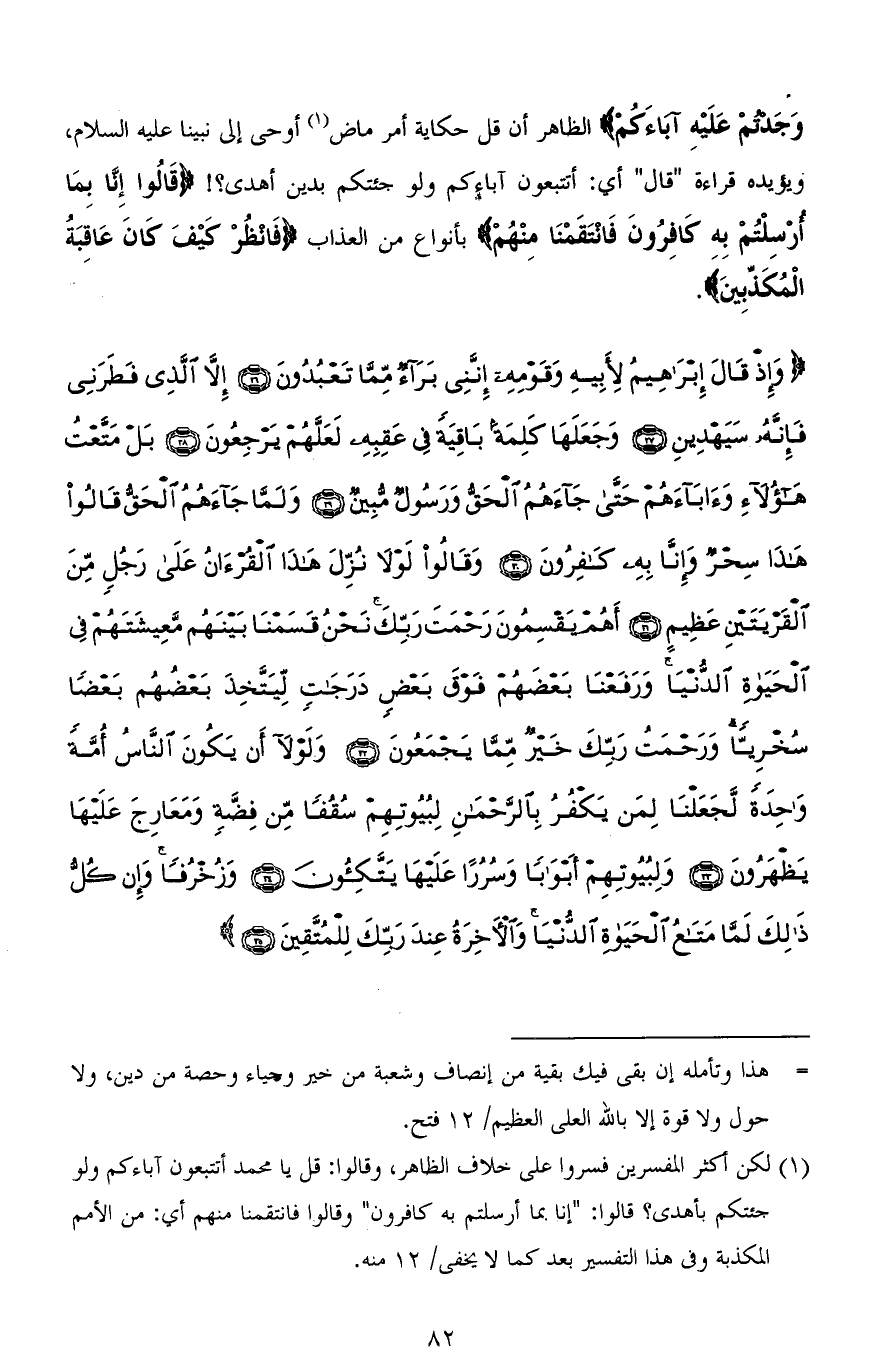 وَجَدْتُمْ عَلَيْهِ آبَاءَكُمْ﴾ الظاهر أن قل حكاية أمر ماض(١) أوحى إلى نبينا عليه السلام،
ويؤيده قراءة "قال" أي: أتتبعون آباءكم ولو جئتكم بدين أهدى؟! ﴿قَالُوا إِنَّا بِمَا
أُرْسِلْتُمْ بِهِ كَافِرُونَ فَانْتَقَمْنَا مِنْهُمْ﴾ بأنواع من العذاب ﴿فَانْظُرْ كَيْفَ كَانَ عَاقِبَةُ
الْمُكَذِّبِينَ﴾.
﴿ وَإِذْ قَالَ إِبْرَٰهِيمُ لِأَبِيهِ وَقَوْمِهِۦٓ إِنَّنِى بَرَآءٌ مِّمَّا تَعْبُدُونَ ٢٦ إِلَّا ٱلَّذِى فَطَرَنِى
فَإِنَّهُۥ سَيَهْدِينِ ٢٧ وَجَعَلَهَا كَلِمَةًۢ بَاقِيَةً فِى عَقِبِهِۦ لَعَلَّهُمْ يَرْجِعُونَ ٢٨ بَلْ مَتَّعْتُ
هَٰٓؤُلَآءِ وَءَابَآءَهُمْ حَتَّىٰ جَآءَهُمُ ٱلْحَقُّ وَرَسُولٌ مُّبِينٌ ٢٩ وَلَمَّا جَآءَهُمُ ٱلْحَقُّ قَالُوا۟
هَٰذَا سِحْرٌ وَإِنَّا بِهِۦ كَٰفِرُونَ ٣٠ وَقَالُوا۟ لَوْلَا نُزِّلَ هَٰذَا ٱلْقُرْءَانُ عَلَىٰ رَجُلٍ مِّنَ
ٱلْقَرْيَتَيْنِ عَظِيمٍ ٣١ أَهُمْ يَقْسِمُونَ رَحْمَتَ رَبِّكَ ۚ نَحْنُ قَسَمْنَا بَيْنَهُم مَّعِيشَتَهُمْ فِى
ٱلْحَيَوٰةِ ٱلدُّنْيَا ۚ وَرَفَعْنَا بَعْضَهُمْ فَوْقَ بَعْضٍ دَرَجَٰتٍ لِّيَتَّخِذَ بَعْضُهُم بَعْضًا
سُخْرِيًّا ۗ وَرَحْمَتُ رَبِّكَ خَيْرٌ مِّمَّا يَجْمَعُونَ ٣٢ وَلَوْلَآ أَن يَكُونَ ٱلنَّاسُ أُمَّةً
وَٰحِدَةً لَّجَعَلْنَا لِمَن يَكْفُرُ بِٱلرَّحْمَٰنِ لِبُيُوتِهِمْ سُقُفًا مِّن فِضَّةٍ وَمَعَارِجَ عَلَيْهَا
يَظْهَرُونَ ٣٣ وَلِبُيُوتِهِمْ أَبْوَٰبًا وَسُرُرًا عَلَيْهَا يَتَّكِـُٔونَ ٣٤ وَزُخْرُفًا ۚ وَإِن كُلُّ
ذَٰلِكَ لَمَّا مَتَٰعُ ٱلْحَيَوٰةِ ٱلدُّنْيَا ۚ وَٱلْأَخِرَةُ عِندَ رَبِّكَ لِلْمُتَّقِينَ ٣٥ ﴾
= هذا وتأمله إن بقى فيك بقية من إنصاف وشعبة من خير وحياء وحصة من دين، ولا
حول ولا قوة إلا بالله العلى العظيم/ ١٢ فتح.
(١) لكن أكثر المفسرين فسروا على خلاف الظاهر، وقالوا: قل يا محمد أتتبعون آباءكم ولو
جئتكم بأهدى؟ قالوا: "إنا بما أرسلتم به كافرون" وقالوا فانتقمنا منهم أي: من الأمم
المكذبة وفى هذا التفسير بعد كما لا يخفى/ ١٢ منه.
٨٢